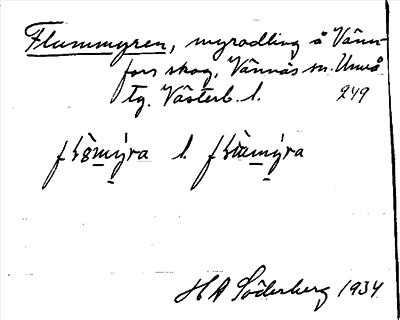 Flummyren, myrodling å Vänn-
fors skog, Vännäs sn. Umeå
tg. Västerb. l. 249
l.
H A Söderberg 1934